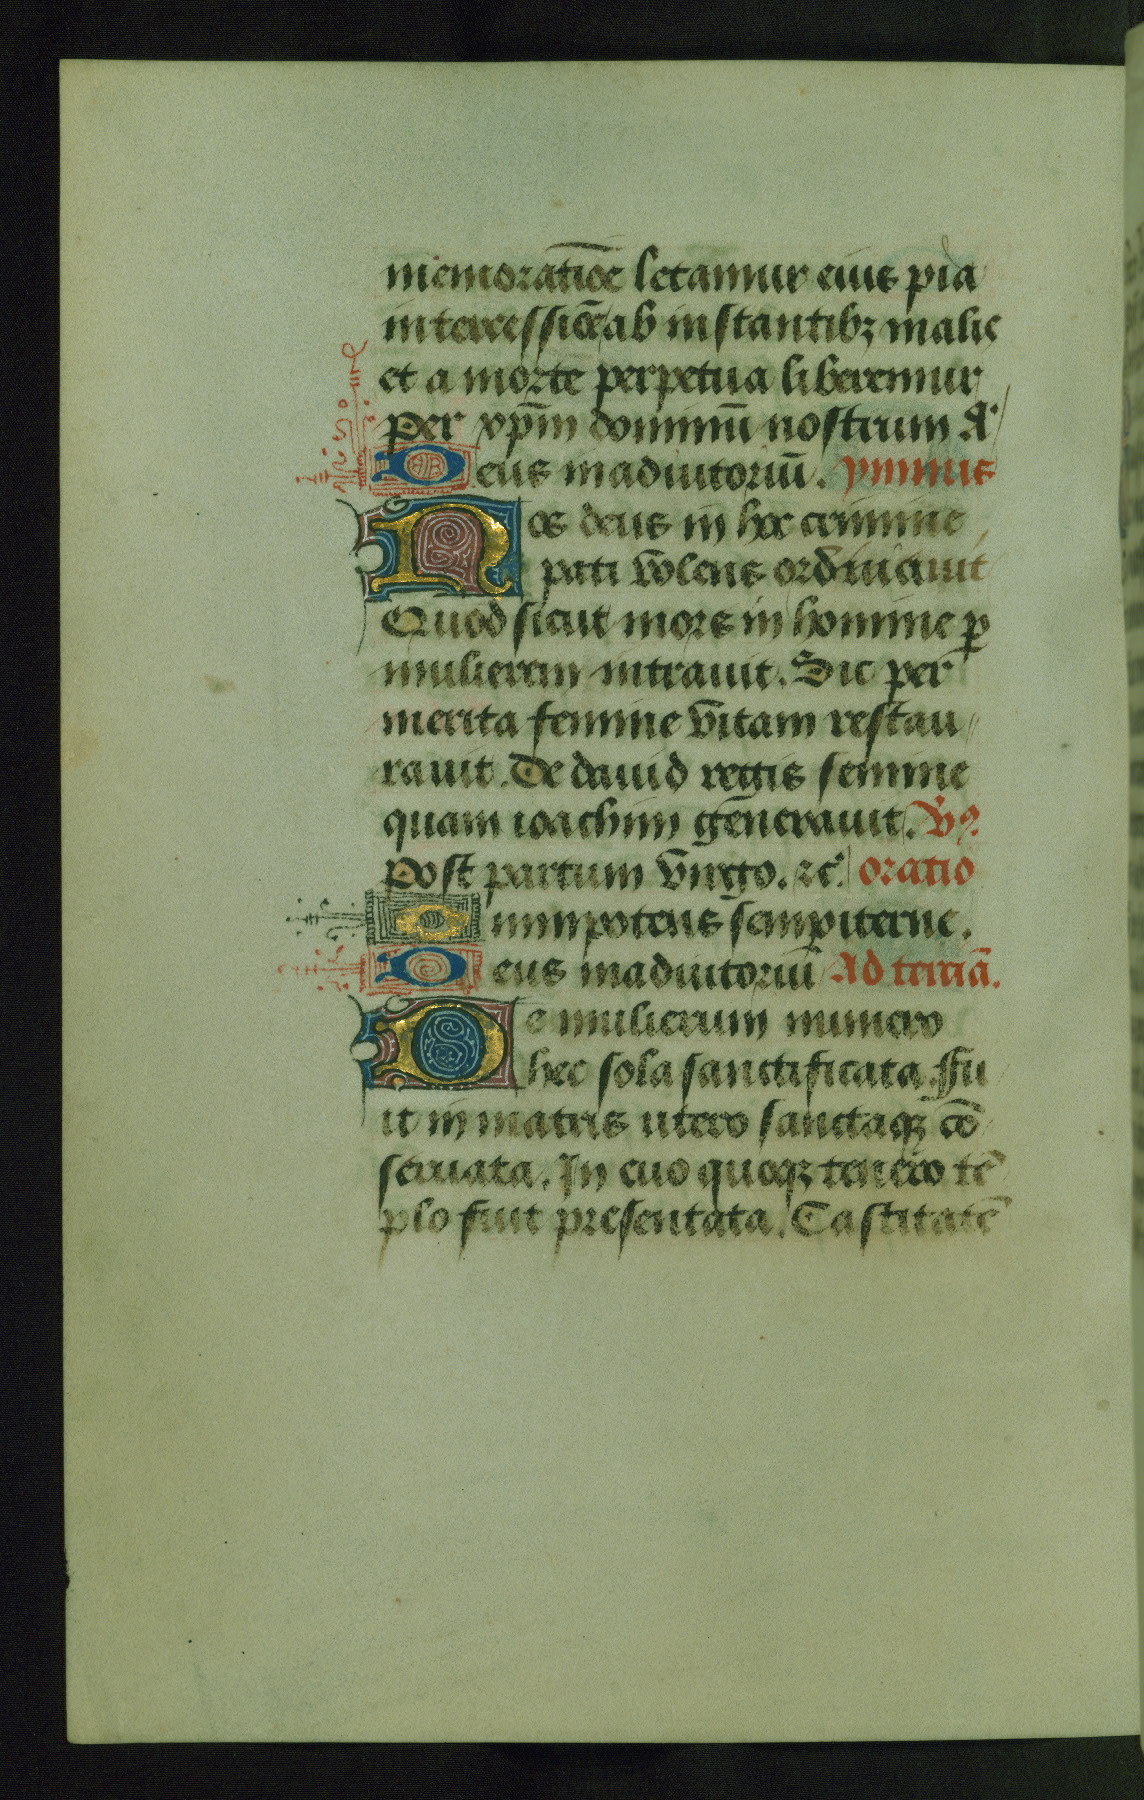 memoratiōe letamur eius pia
intercessiōe ab instantibꝫ malis
et a morte perpetua liberemur
per xp̄m dominū nostrum A
Deus in adiutoriū. ymnus
Nos deus in hoc crimine
pati volens ordinauit
Quod sicut mors in homine ꝑ
mulierem intrauit. Sic per
merita femine vitam restau
rauit. De dauid regis semine
quam ioachim generauit. Vꝰ
Post partum virgo. ⁊c̄. oratio
Omnipotens sempiterne.
Deus in adiutoriū Ad terciā.
De mulierum numero
hec sola sanctificata. Fu
it in matris utero sanctaqꝫ cō
seruata. In euo quoqꝫ tenero tē
plo fuit presentata. Castitatē